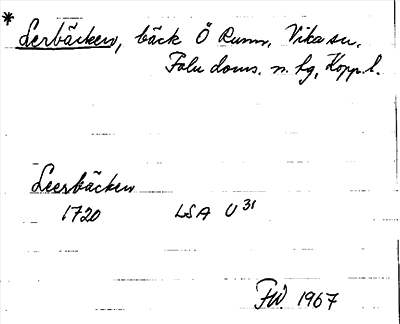 * Lerbäcken, bäck Ö Runn, Vika sn,
Falu doms. n. hg, Kopp. l.
Leerbäcken
1720 LSA U 31
FW. 1967